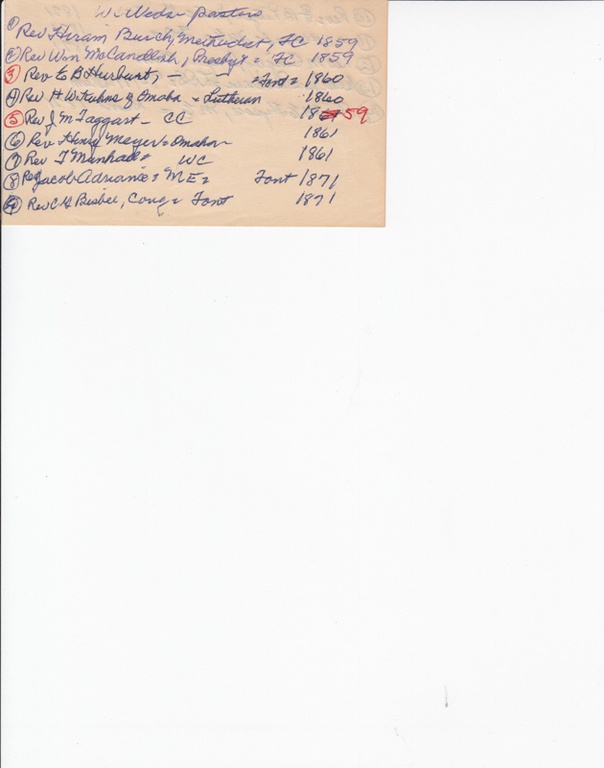 pastors
① Rev Hiram Burch, Methodist, FC 1859
② Rev Wm McCandlish, Presbyt = FC 1859
③ Rev E B Hurburt, — — = Font = 1860
④ Rev H W Kuhns of Omaha = Lutheran 1860
⑤ Rev J M Taggart - CC 1859
⑥ Rev Henry Meyer = Omaha 1861
⑦ Rev T Munhall = WC 1861
⑧ Rev Jacob Adriance = M.E. = Font 1871
⑨ Rev C H Bisbee, Cong = Font 1871